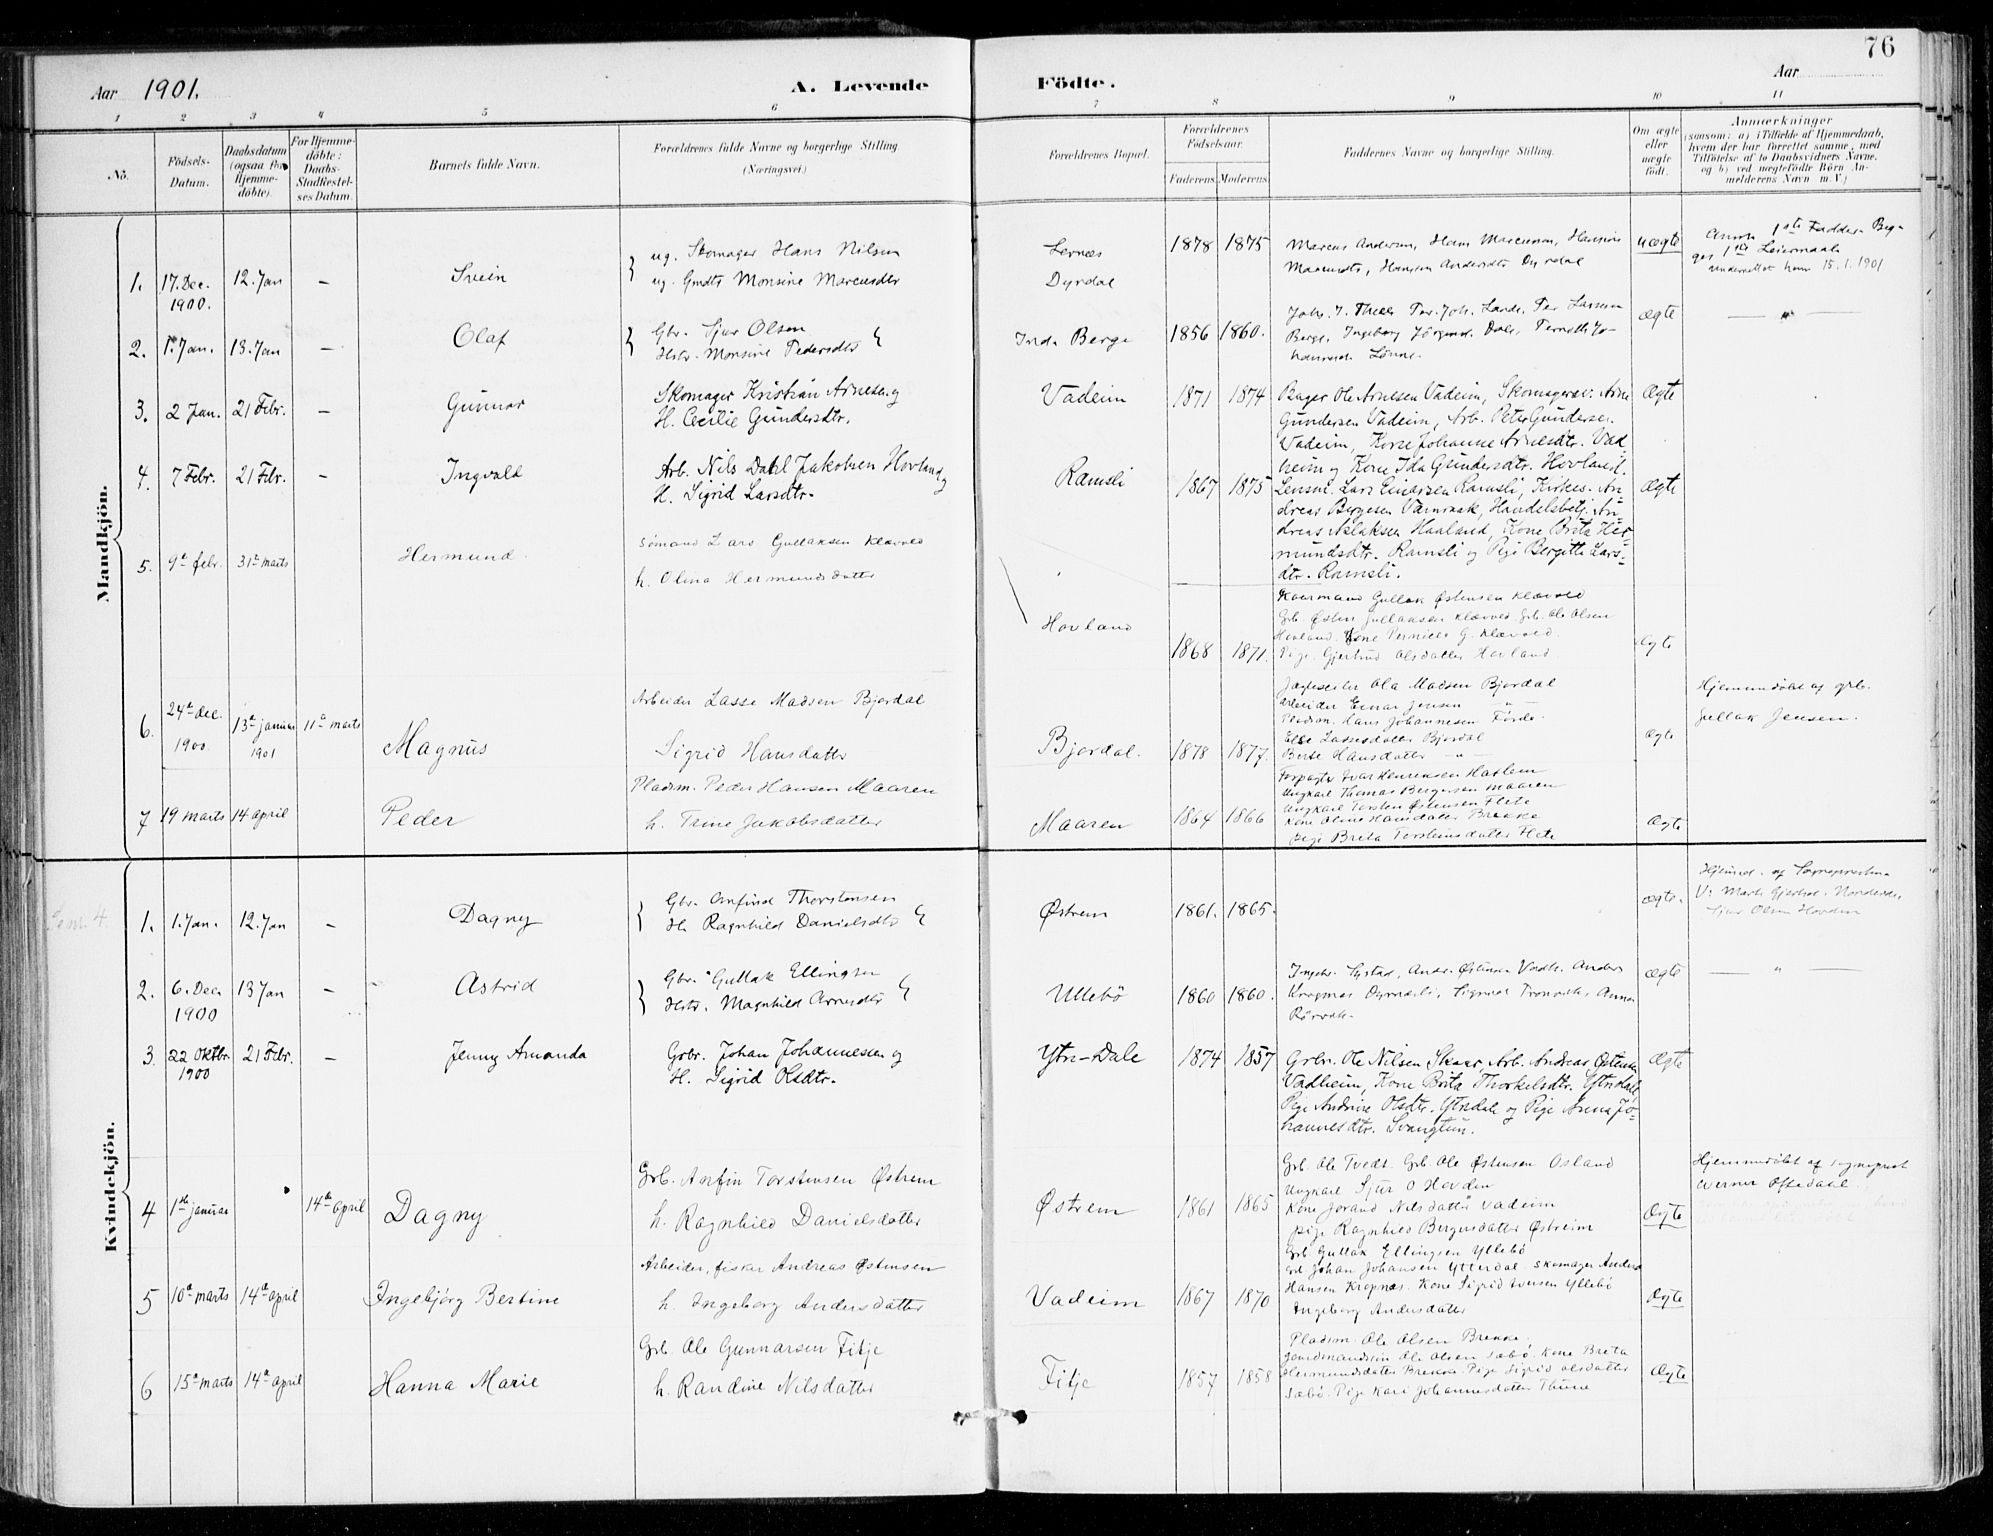 76
Aar 1901.
A. Levende
Födte.
Aar
1 2 3 4 5 6 7 8 9 10 11
No.
Födsels-
Datum.
Daabsdatum
(ogsaa for
Hjemme-
döbte).
For Hjemme-
döbte:
Daabs-
Stadfestel-
ses Datum.
Barnets fulde Navn.
Forældrenes fulde Navne og borgerlige Stilling
(Næringsvei.)
Forældrenes Bopæl.
Forældrenes
Födselsaar.
Faderens. Moderens.
Faddernes Navne og borgerlige Stilling.
Om ægte
eller
uægte
födt.
Anmærkninger
(saasom: a) i Tilfælde af Hjemmedaab,
hvem der har forrettet samme, med
Tilföielse af to Daabsvidners Navne,
og b) ved uægtefödte Börn An-
melderens Navn m. V.)
Mandkjön.
1. 17. Dec. 1900. 12. Jan – Svein
ug. Skomager Hans Nilsen
ug. Gmdtr Monsine Marcusdtr
Dyrdal
1878 1875
Marcus Andersen, Hans Marcussen, Hansine
Marcusdtr, Hansen Andersdtr Dyrdal
uægte
15.1.1901
2. 1. Jan. 13. Jan – Olaf
Gbr. Sjur Olsen
Hstr. Monsine Pedersdtr
Indr Berge
1856 1860.
ægte
— " —
3. 2 Jan. 21 Febr. – Gunnar
Skomager Kristian Arnesen og
H. Cecilie Gundersdtr.
Vadeim
1871 1874
Bager Ole Arnesen Vadeim, Skomagersv. Arne
Gundersen Vadeim, Arb. Peter Gundersen
Vadeim, Kone Johanne Arnesdtr. Vad
heim og Kone Ida Gundersdtr. Hovland.
Ægte
4. 7 Febr. 21 Febr. – Ingvald
Arb. Nils Dahl Jakobsen Hovland og
H. Sigrid Larsdtr.
Ramsli
1867 1875
Lensm. Lars Einarsen Ramsli, Kirkes. An-
dreas Bergesen Værnsak, Handelsbetj. An-
dreas Aslaksen Haaland, Kone Brita Her-
mundsdtr. Ramsli og Pige Bergitte Lars-
dtr. Ramsli.
Ægte
5. 9de febr. 31te marts Hermund.
Sömand Lars Gullaksen Klævold
h. Olina Hermundsdatter
Hovland
1868 1871.
Kaarmand Gullak Østensen Klævold
Grb. Østen Gullaksen Klævold. Grb. Ole Olsen
Hovland. Kone Pernille G. Klævold.
Pige Gjertrud Olsdatter Hovland
Ægte
6. 24de dec. 1900. 13de januar 1901 11te marts Magnus
Arbeider Lasse Madsen Bjordal
Sigrid Hansdatter
Bjordal.
1878 1877.
Jægteseiler Ola Madsen Bjordal
Arbeider Einar Jensen — " —
Pladsm. Hans Johannesen Förde.
Else Lassesdatter Bjordal
Berte Hansdatter — " —
Ægte
Hjemmedøbt af grb.
Gullak Jensen.
7 19 marts 14 april Peder
Pladsm. Peder Hansen Maaren
h. Trine Jakobsdatter
Maaren
1864 1866
Forpagter Ivar Henriksen Havlem
Ungkarl Thomas Bergersen Maaren
Ungkarl Torsten Østensen Flete
Kone Oline Hansdatter Brekke
Pige Breta Torsteinsdatter Flete
Ægte
Kvindekjön.
1. 1. Jan. 12. Jan – Dagny
Gbr. Anfind Thorstensen
H. Ragnhild Danielsdtr
Østrem
1861. 1865.
ægte.
Sjur Olsen Hovden
2. 6. Dec. 1900 13 Jan – Astrid
Gbr. Gullak Ellingsen
Hstr. Magnhild Arnesdtr
Ullebö
1860 1860.
ægte
— " —
3 22 Oktbr. 1900 21 Febr. – Jenny Amanda
Grbr. Johan Johannessen og
H. Sigrid Olsdtr.
Ytre-Dale
1874 1857
Grbr. Ole Nilsen Skaar, Arb. Andreas Østensen
Vadheim, Kone Brita Thorkelsdtr. Ytredale,
Pige Andrine Olsdtr. Ytredale og Pige Anna Jo-
hannesdtr. Svangtun.
Ægte
4 1ste januar 14de april Dagny
Grb. Anfin Torstensen Østrem
h. Ragnhild Danielsdatter
Østrem
1861 1865
Grb. Ole Tvedt. Grb. Ole Østensen Osland
Ungkarl Sjur O Hovden
Kone Jorand Nilsdatter Vadeim
Pige Ragnhild Bergersdatter Østreim
Ægte
Hjemmedøbt af sogneprest
Werner Oftedahl.
5 10de marts 14de april Ingebjörg Bertine
Arbeider, fisker Andreas Østensen
h. Ingeborg Andersdatter
Vadeim
1867 1870
Grb. Gullak Ellingsen Yllebö
Grb. Johan Johansen Ytterdal Skomager Anders
Hansen Kropnæs. Kone Sigrid Iversen Yllebö
Ingeborg Andersdatter
Ægte
6 15de marts 14de april Hanna Marie
Grb. Ole Gunnarsen Fitje
h. Randine Nilsdatter
Fitje
1857 1858
Pladsm. Ole Olsen Brekke.
Gaardmandssön Ole Olsen Sæbö. Kone Breta
Hermundsdatter Brekke. Pige Sigrid Olsdatter
Sæbö. Pige Kari Johannesdatter Thune
Ægte